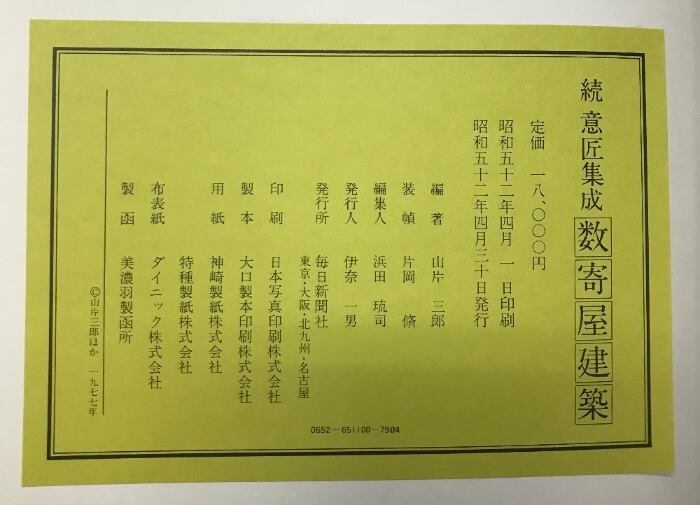 続 意匠集成 数寄屋建築
定価 一八、〇〇〇円
昭和五十二年四月 一 日印刷
昭和五十二年四月三十日発行
編 著 山片 三郎
装 幀 片岡 脩
編集人 浜田 琉司
発行人 伊奈 一男
発行所 毎日新聞社
東京・大阪・北九州・名古屋
印 刷 日本写真印刷株式会社
製 本 大口製本印刷株式会社
用 紙 神崎製紙株式会社
特種製紙株式会社
布表紙 ダイニック株式会社
製 函 美濃羽製函所
©山片三郎ほか 一九七七年
0652－651100－7904